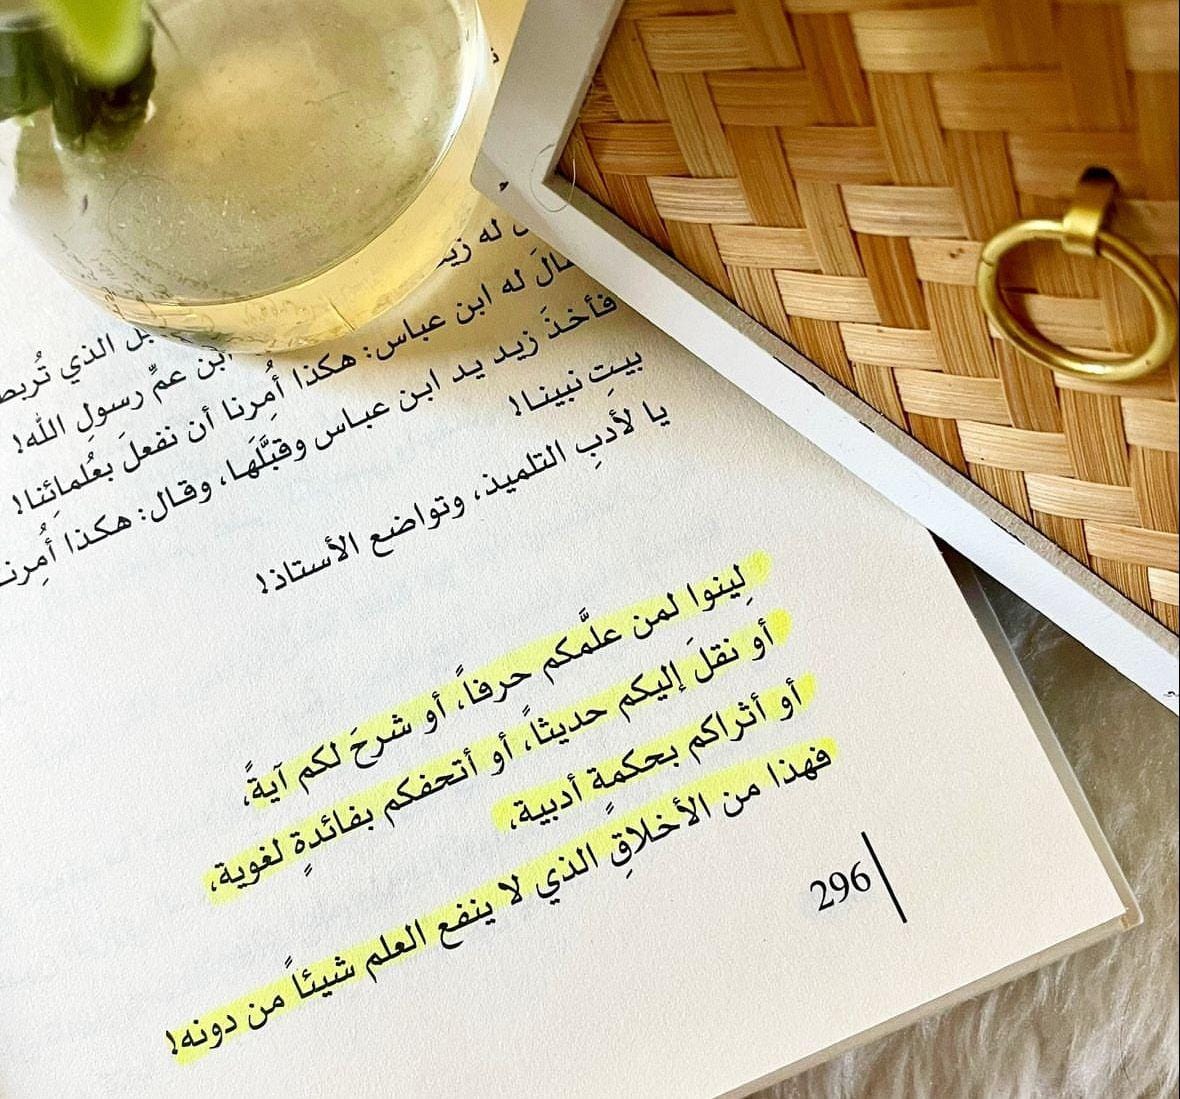 له زيد
بل الذي تُربط
قالَ له ابن عباس: هكذا أُمِرنا أن نفعلَ بعُلمائِنا!
ابن عمِّ رسولِ الله!
فأخذَ زيد يد ابن عباس وقبَّلَها، وقال: هكذا أُمِرنا
بيتِ نبينا!
يا لأدبِ التلميذ، وتواضع الأستاذ!
لِينوا لمن علَّمكم حرفاً، أو شرحَ لكم آيةً،
أو نقلَ إليكم حديثاً، أو أتحفكم بفائدةٍ لغوية،
أو أثراكم بحكمة أدبية،
فهذا من الأخلاقِ الذي لا ينفع العلم شيئاً من دونه!
296